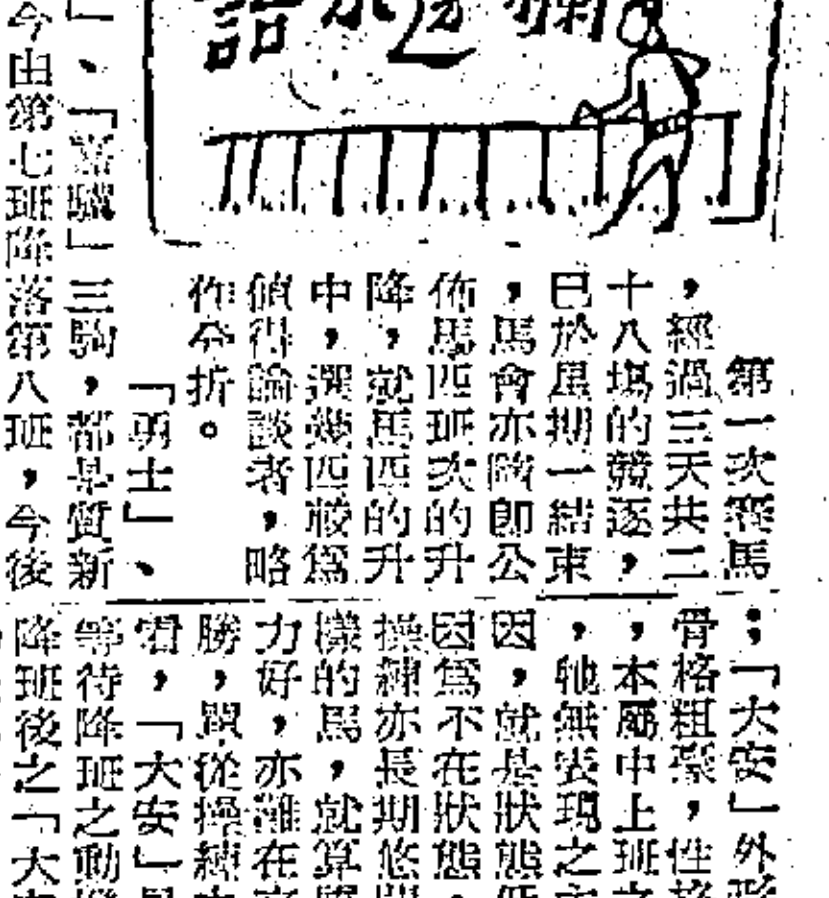 第一次賽馬
，經過三天共二
十八場的競逐，
已於星期一結束
，馬會亦隨即公
佈馬匹班次的升
降，就馬匹的升
中，選幾匹較為
值得論談者，略
作分折。
「勇士」、
」三駒，都是質新
今由第七班降落第八班，今後
；「大安」外形
骨格粗豪，性格
，本屬中上班之
，牠無表現之主
因，就是狀態
因為不在狀態，
操練亦長期悠閒
樣的馬，就算
力好，亦難在
勝，單從操練
看，「大安」
等待降班之動
降班後之「大